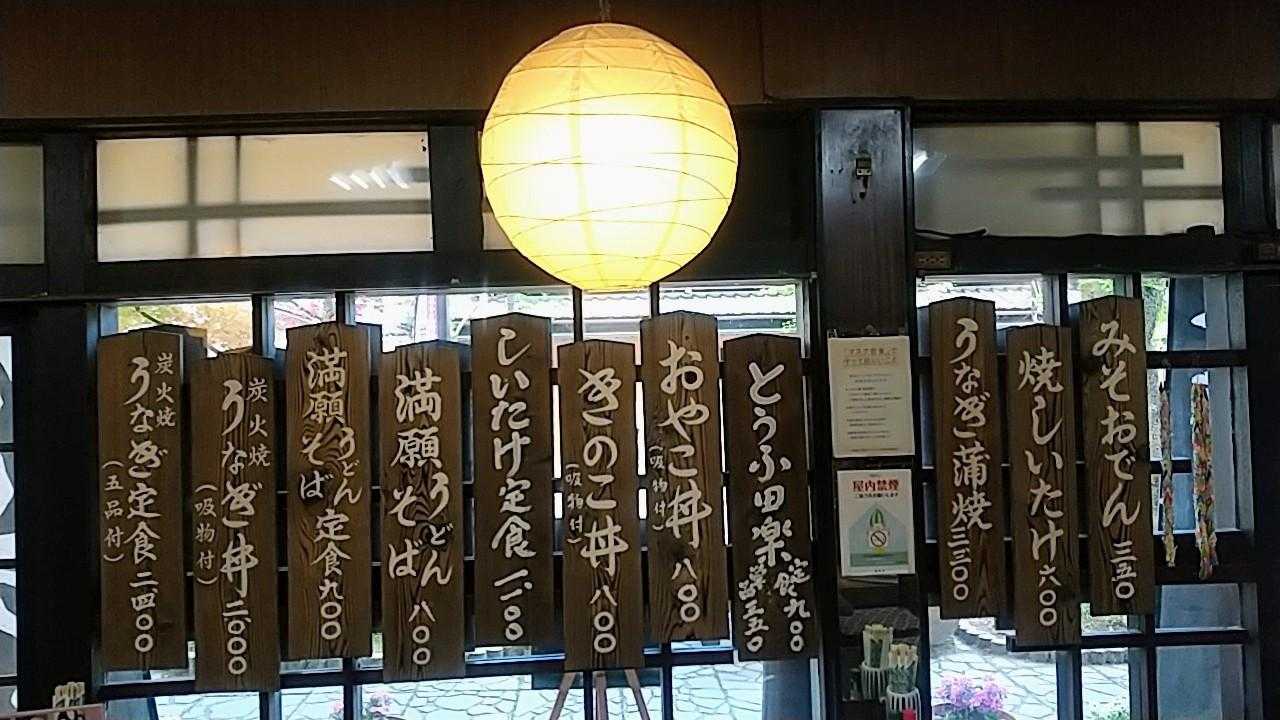 みそおでん 三五〇
焼しいたけ 六〇〇
うなぎ蒲焼 三三〇〇
とうふ田楽 定食 九〇〇
単品 三五〇
おやこ丼 八〇〇
(吸物付)
きのこ丼 八〇〇
(吸物付)
しいたけ定食 一、一〇〇
満願うどん
そば 八〇〇
満願うどん
そば 定食 九〇〇
炭火焼
うなぎ丼 二、〇〇〇
(吸物付)
炭火焼
うなぎ定食 二、四〇〇
(五品付)
屋内禁煙